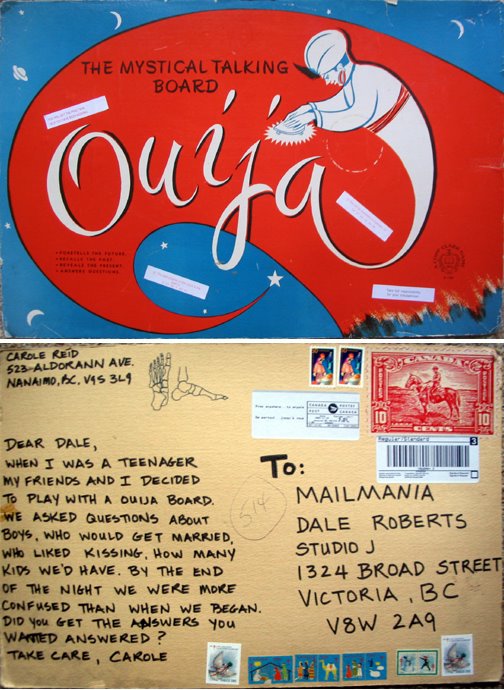 THE MYSTICAL TALKING
BOARD
Ouija
• FORETELLS THE FUTURE.
• RECALLS THE PAST.
• REVEALS THE PRESENT.
• ANSWERS QUESTIONS.
CAROLE REID
523 ALDORANN AVE.
NANAIMO, B.C. V9S 3L9
CANADA
10 10
CENTS
Regular/Standard
3
514
DEAR DALE,
WHEN I WAS A TEENAGER
MY FRIENDS AND I DECIDED
TO PLAY WITH A OUIJA BOARD.
WE ASKED QUESTIONS ABOUT
BOYS, WHO WOULD GET MARRIED,
WHO LIKED KISSING, HOW MANY
KIDS WE'D HAVE. BY THE END
OF THE NIGHT WE WERE MORE
CONFUSED THAN WHEN WE BEGAN.
DID YOU GET THE ANSWERS YOU
WANTED ANSWERED?
TAKE CARE, CAROLE
TO:
MAILMANIA
DALE ROBERTS
STUDIO J
1324 BROAD STREET
VICTORIA, BC
V8W 2A9